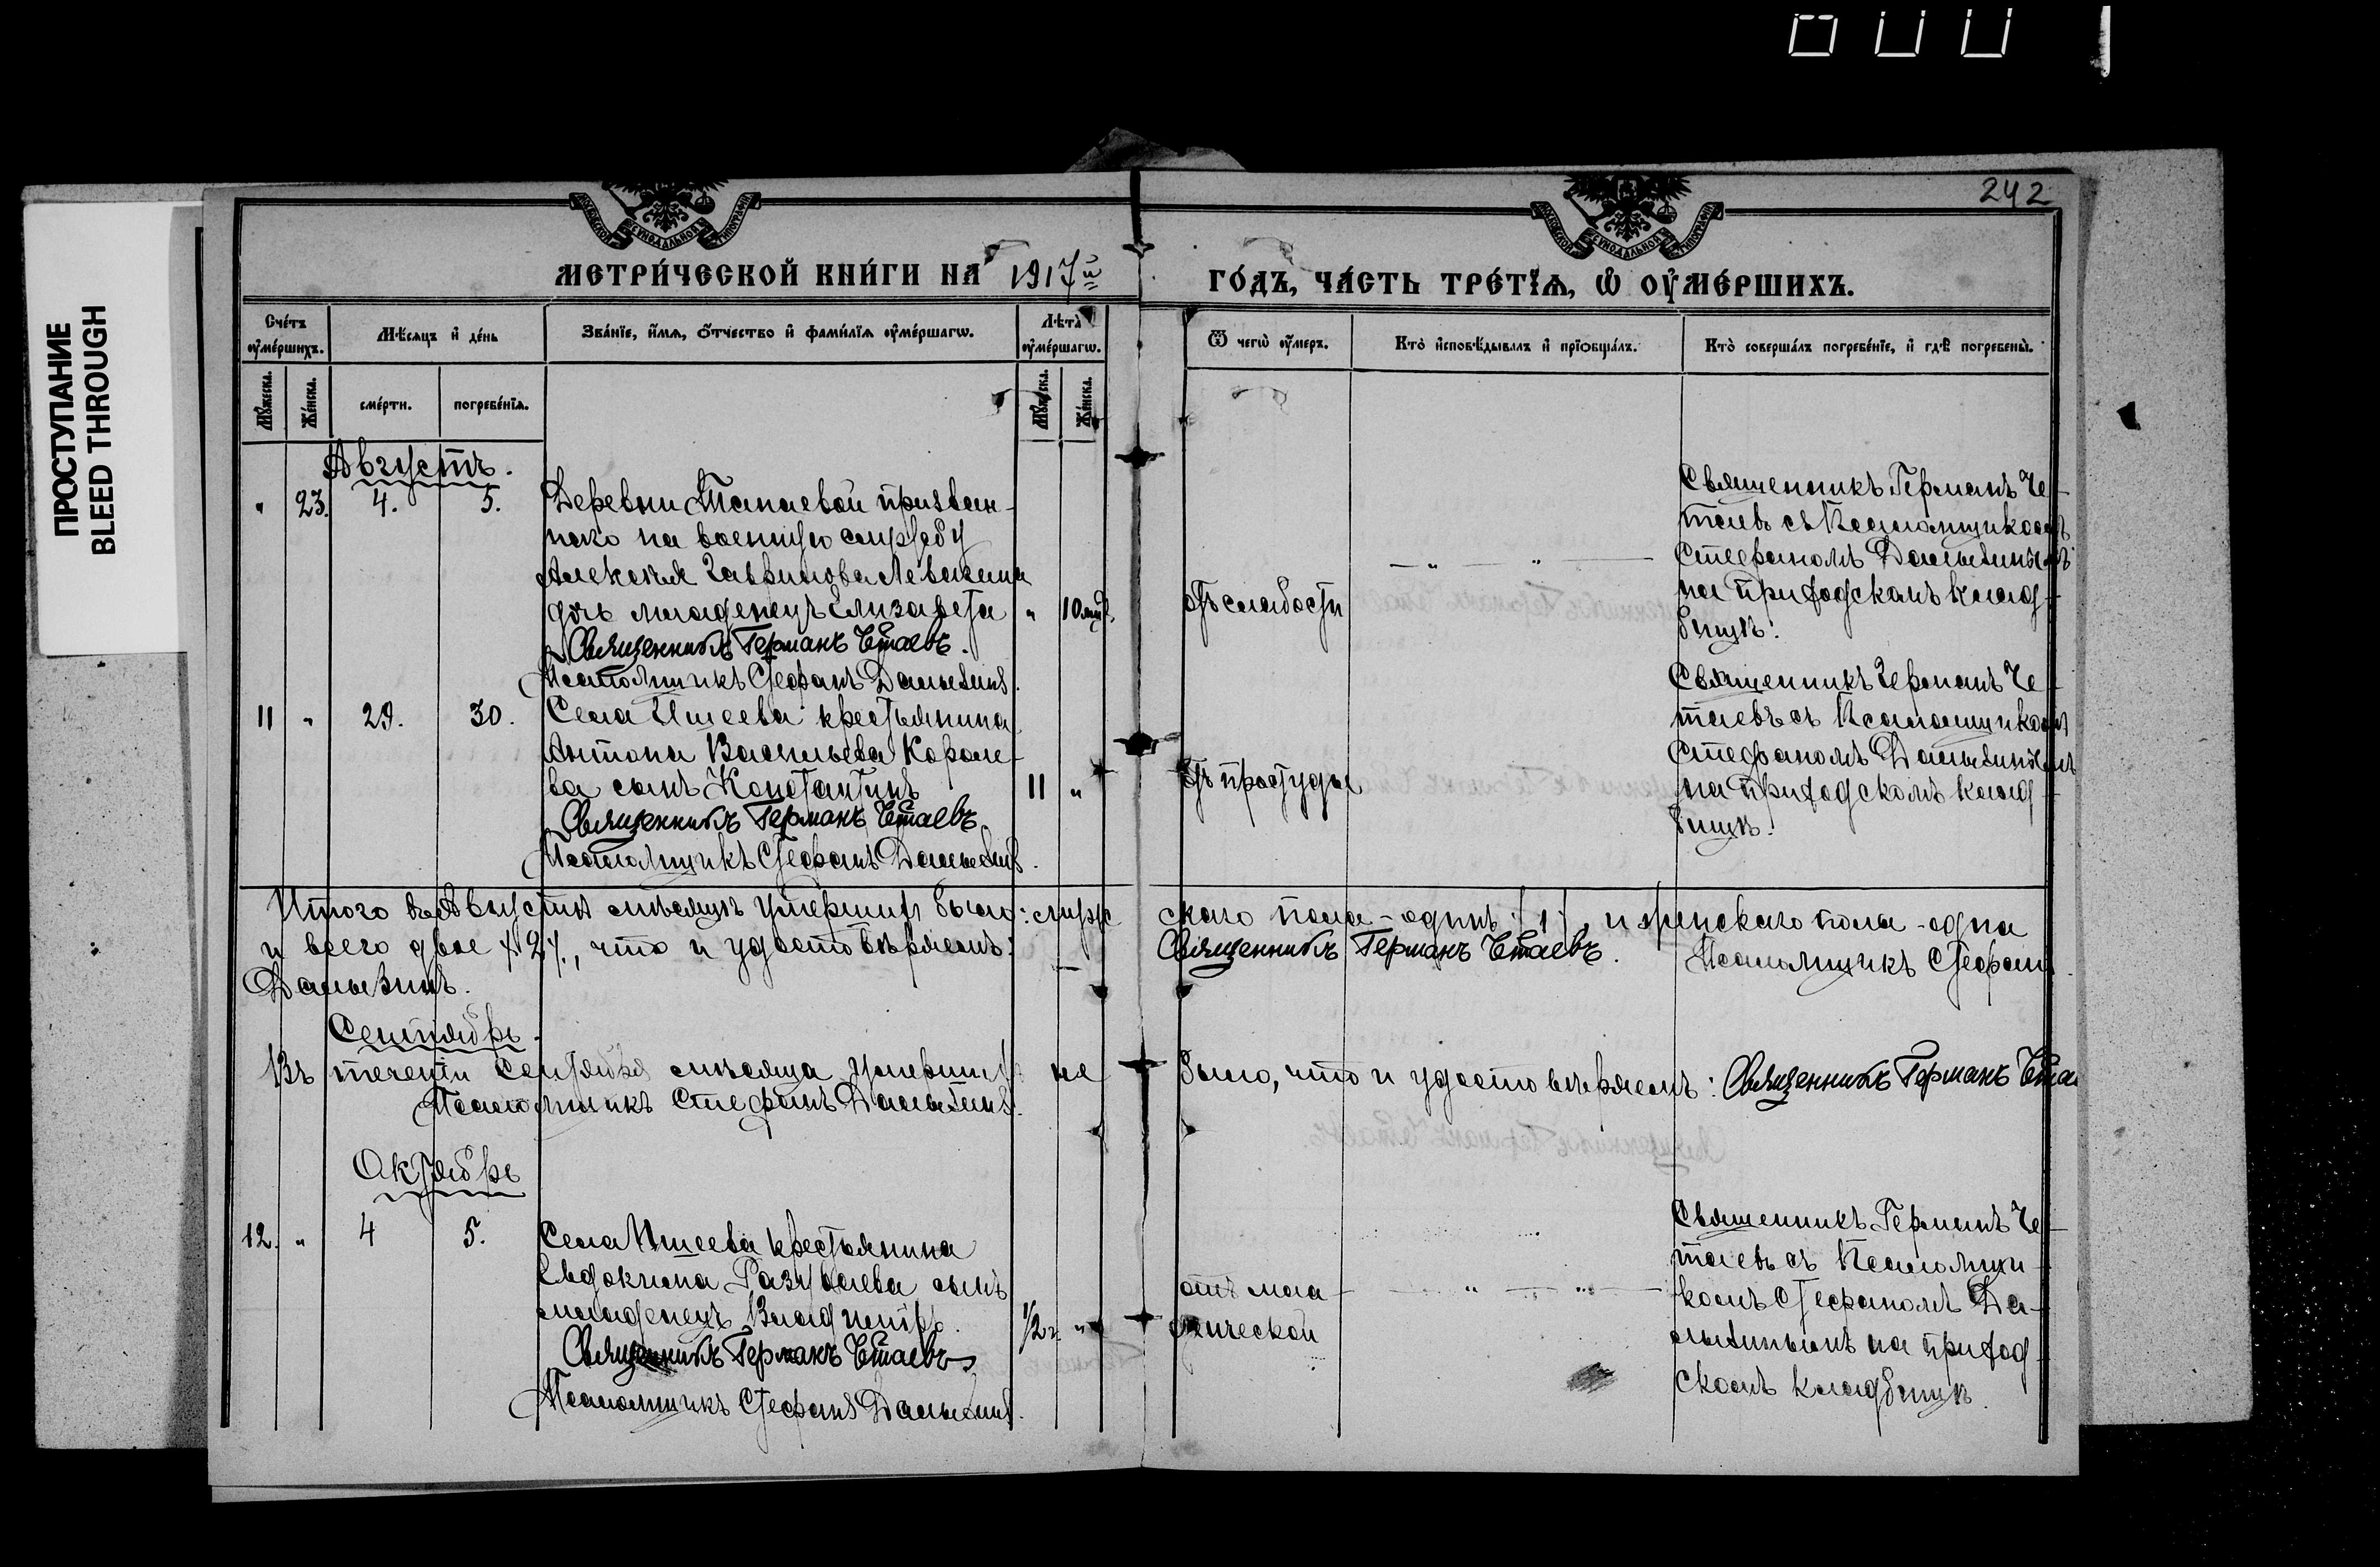 242
ПРОСТУПАНИЕ
BLEED THROUGH
МЕТРИ́ЧЕСКОЙ КНИ́ГИ НА 1917й
ГО́ДЪ, ЧА́СТЬ ТРЕ́ТЇѦ, Ѡ ОУ҆МЕ́РШИХЪ.
Сче́тъ оу҆ме́ршихъ.
Мѣ́сяцъ и҆ де́нь
Зва́нїе, и҆́мѧ, ѻ҆́тчество и҆ фами́лїѧ оу҆ме́ршагѡ.
Лѣта̀ оу҆ме́ршагѡ.
Ѿ чегѡ̀ оу҆́меръ.
Кто̀ и҆сповѣ́дывалъ и҆ прїобща́лъ.
Кто̀ соверша́лъ погребе́нїе, и҆ гдѣ̀ погребены̀.
Му́жеска.
Же́нска.
сме́рти.
погребе́нїѧ.
Му́жеска.
Же́нска.
Августъ.
" 23. 4. 5.
Деревни Танаевой призван-
наго на военную службу
Алексия Гаврилова
дочь младенецъ Елизавета " 10 мѣс.
Священникъ Германъ Четаевъ.
Псаломщикъ Стефанъ Далызинъ.
отъ слабости
Священникъ Германъ Че-
таевъ съ Псаломщикомъ
Стефаномъ Далызинымъ
на приходскомъ клад-
бищѣ.
11 " 29. 30.
Села Ишеева крестьянина
Антона Васильева Короле-
ва сынъ Константинъ 11 "
Священникъ Германъ Четаевъ.
Псаломщикъ Стефанъ Далызинъ.
отъ простуды
Священникъ Германъ Че-
таевъ съ Псаломщикомъ
Стефаномъ Далызинымъ
на приходскомъ клад-
бищѣ.
Итого въ Августѣ мѣсяцѣ умершихъ было: муж
скаго пола - одинъ /1/, и женскаго пола - одна
и всего двое /2/, что и удостовѣряемъ:
Священникъ Германъ Четаевъ. Псаломщикъ Стефанъ
Далызинъ.
Сентябрь.
Въ теченіи Сентября мѣсяца умершихъ не
было, что и удостовѣряемъ: Священникъ Германъ Чета
Псаломщикъ Стефанъ Далызинъ.
Октябрь
12. " 4 5.
Села Ишеева крестьянина
Евдокима сынъ
младенецъ Владимiръ. 1/2 г. "
Священникъ Германъ Четаевъ
Псаломщикъ Стефанъ Далызинъ.
отъ мла-
денческой
Священникъ Германъ Че-
таевъ съ Псаломщи-
комъ Стефаномъ Да-
лызинымъ на приход-
скомъ кладбищѣ.